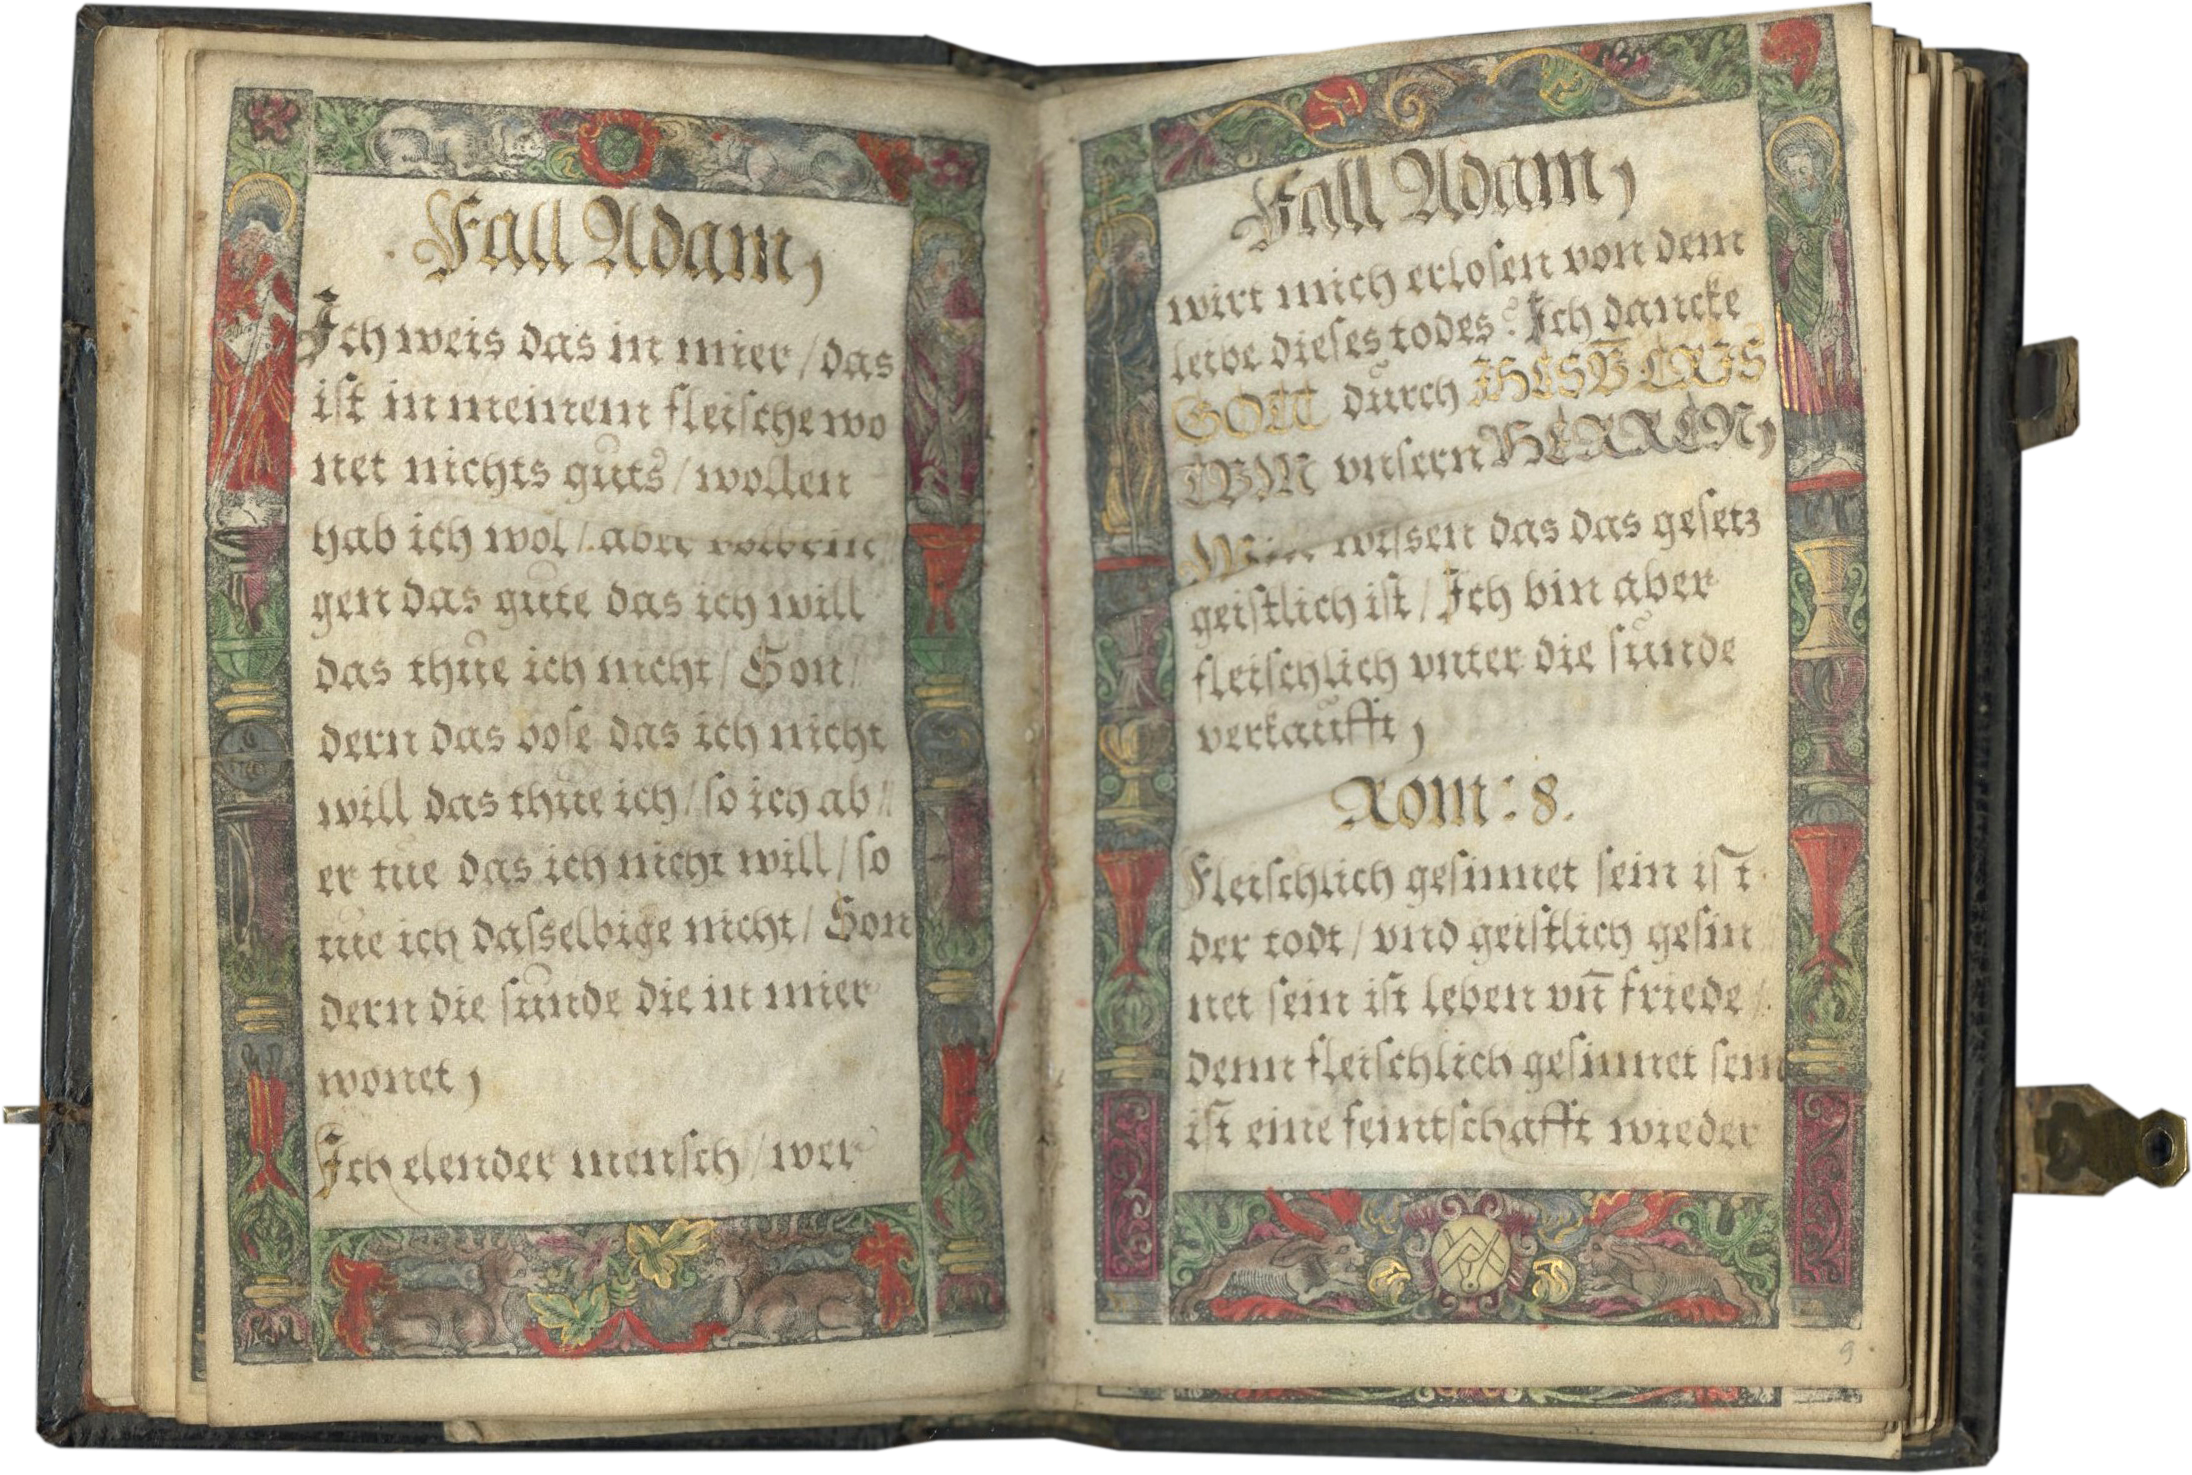 Fall Adam,
Ich weis das in mier / das
ist in meinem fleische wo
net nichts guts / wollen
hab ich wol / aber volbrin
gen das gute das ich will
das thue ich nicht / Son/
dern das bose das ich nicht
will das thue ich / so ich ab//
er tue das ich nicht will / so
tue ich dasselbige nicht / Son
dern die sunde die in mier
wonet,
Ich elender mensch / wer
Fall Adam,
wirt mich erlosen von dem
leibe dieses todes? Ich dancke
GOTT durch JHESV̄ CRIS
TVM vnsern HERREN,
Wir wissen das das gesetz
geistlich ist / Ich bin aber
fleischlich vnter die sunde
verkaufft,
Rom: 8.
Fleischlich gesinnet sein ist
der todt / vnd geistlich gesin
net sein ist leben vn̄ friede /
denn fleischlich gesinnet sein
ist eine feintschafft wieder
9